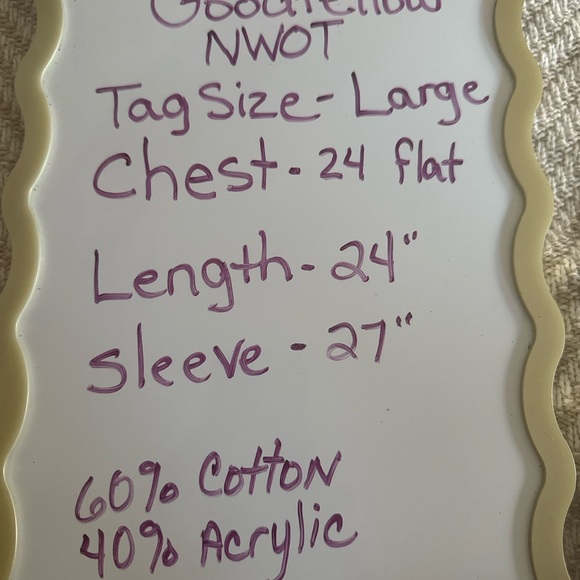 Goodfellow
NWOT
Tag Size - Large
Chest - 24 flat
Length - 24"
Sleeve - 27"
60% Cotton
40% Acrylic